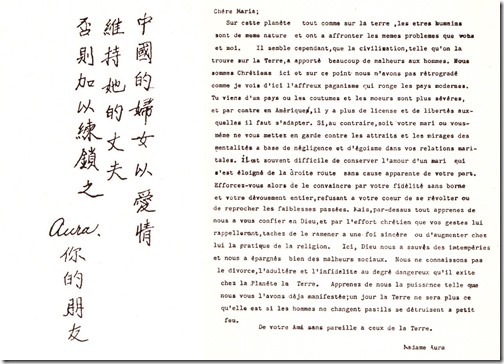 中國的婦女以愛情
維持她的丈夫
否則加以練鎖之
Aura.
你的朋友
Chère Maria;
Sur cette planète tout comme sur la terre,les etres humains
sont de meme nature et ont a affronter les memes problemes que vous
et moi. Il semble cependant,que la civilisation,telle qu'on la
trouve sur la Terre,a apporté beaucoup de malheurs aux hommes. Nous
sommes Chrétiens ici et sur ce point nous n'avons pas rétrogradé
comme je vois d'ici l'affreux paganisme qui ronge les pays modernes.
Tu viens d'un pays ou les coutumes et les moeurs sont plus sévères,
et par contre en Amérique,il y a plus de license et de libertés aux-
quelles il faut s'adapter. Si,au contraire,soit votre mari ou vous-
même ne vous mettes en garde contre les attraits et les mirages des
mentalités a base de négligence et d'égoisme dans vos relations mari-
tales. Il est souvent difficile de conserver l'amour d'un mari qui
s'est éloigné de la droite route sans cause apparente de votre part.
Efforcez-vous alors de le convaincre par votre fidélité sans borne
et votre dévouement entier,refusant a votre coeur de se révolter ou
de reprocher les faiblesses passées. Mais,par-dessus tout apprenez de
nous a vous confier en Dieu,et par l'effort chrétien que vos gestes lui
rappelleront,taches de le ramener a une foi sincère ou d'augmenter chez
lui la pratique de la religion. Ici, Dieu nous a sauvés des intempéries
et nous a épargnés bien des malheurs sociaux. Nous ne connaissons pas
le divorce,l'adultère et l'infidélité au degré dangereux qu'il existe
chez la Planète la Terre. Apprenez de nous la puissance telle que
nous vous l'avons déja manifestée;un jour la Terre ne sera plus ce
qu'elle est si les hommes ne changent pas:ils se détruisent a petit
feu.
De votre Ami sans pareille à ceux de la Terre.
Madame Aura